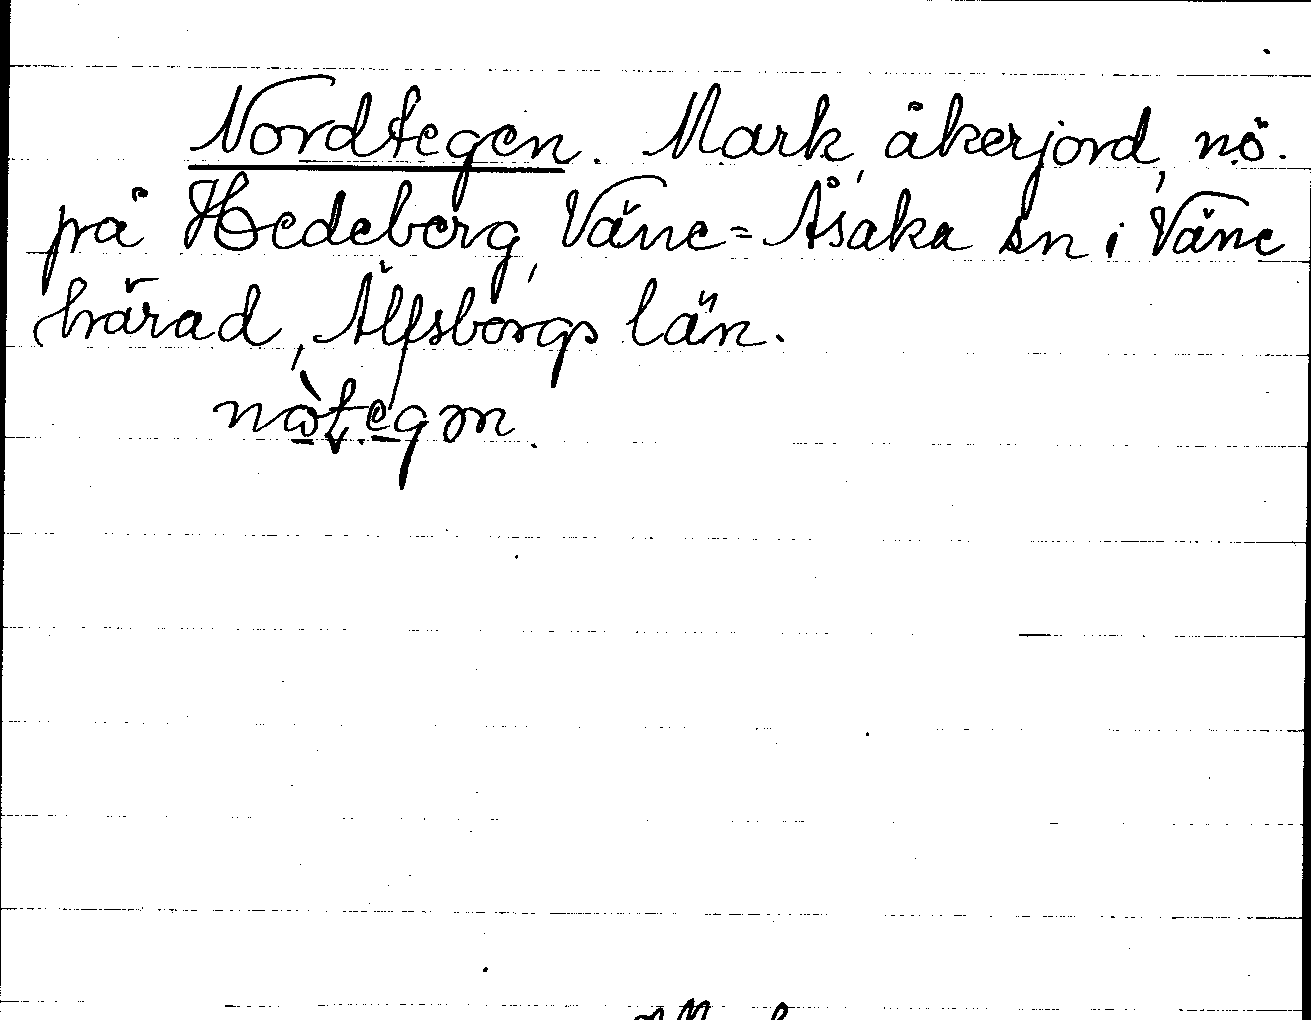 Nordtegen. Mark, åkerjord, nö.
på Hedeberg, Väne-Åsaka sn i Väne
härad, Älfsborgs län.
nòtegən.